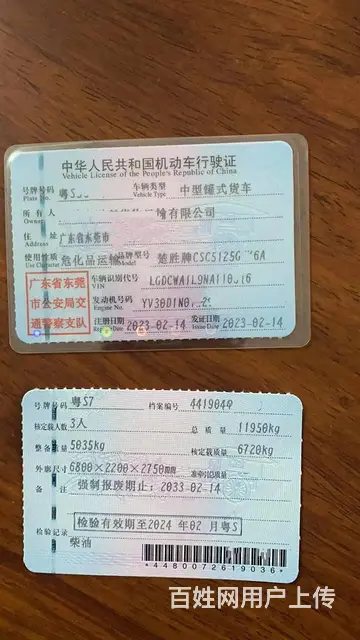 中华人民共和国机动车行驶证
Vehicle License of the People's Republic of China
号牌号码 粤S 车辆类型 中型罐式货车
Plate No. Vehicle Type
所有人 输有限公司
Owner
住址 广东省东莞市
Address
使用性质 危化品运输 品牌型号 楚胜牌CSC5125G 6A
Use Character
广东省东莞
市公安局交
通警察支队
车辆识别代号 LGDCWA1L9NA110 6
VIN
发动机号码 YV30DIN0
Engine No.
注册日期 2023-02-14 发证日期 2023-02-14
Register Date Issue Date
号牌号码 粤S7 档案编号 4419044
核定载人数 3人 总质量 11950kg
整备质量 5035kg 核定载质量 6720kg
外廓尺寸 6800×2200×2750mm 准牵引总质量
备注 强制报废期止:2033-02-14
检验有效期至2024年02月粤S
检验记录
柴油
*4480072619036*
百姓网用户上传